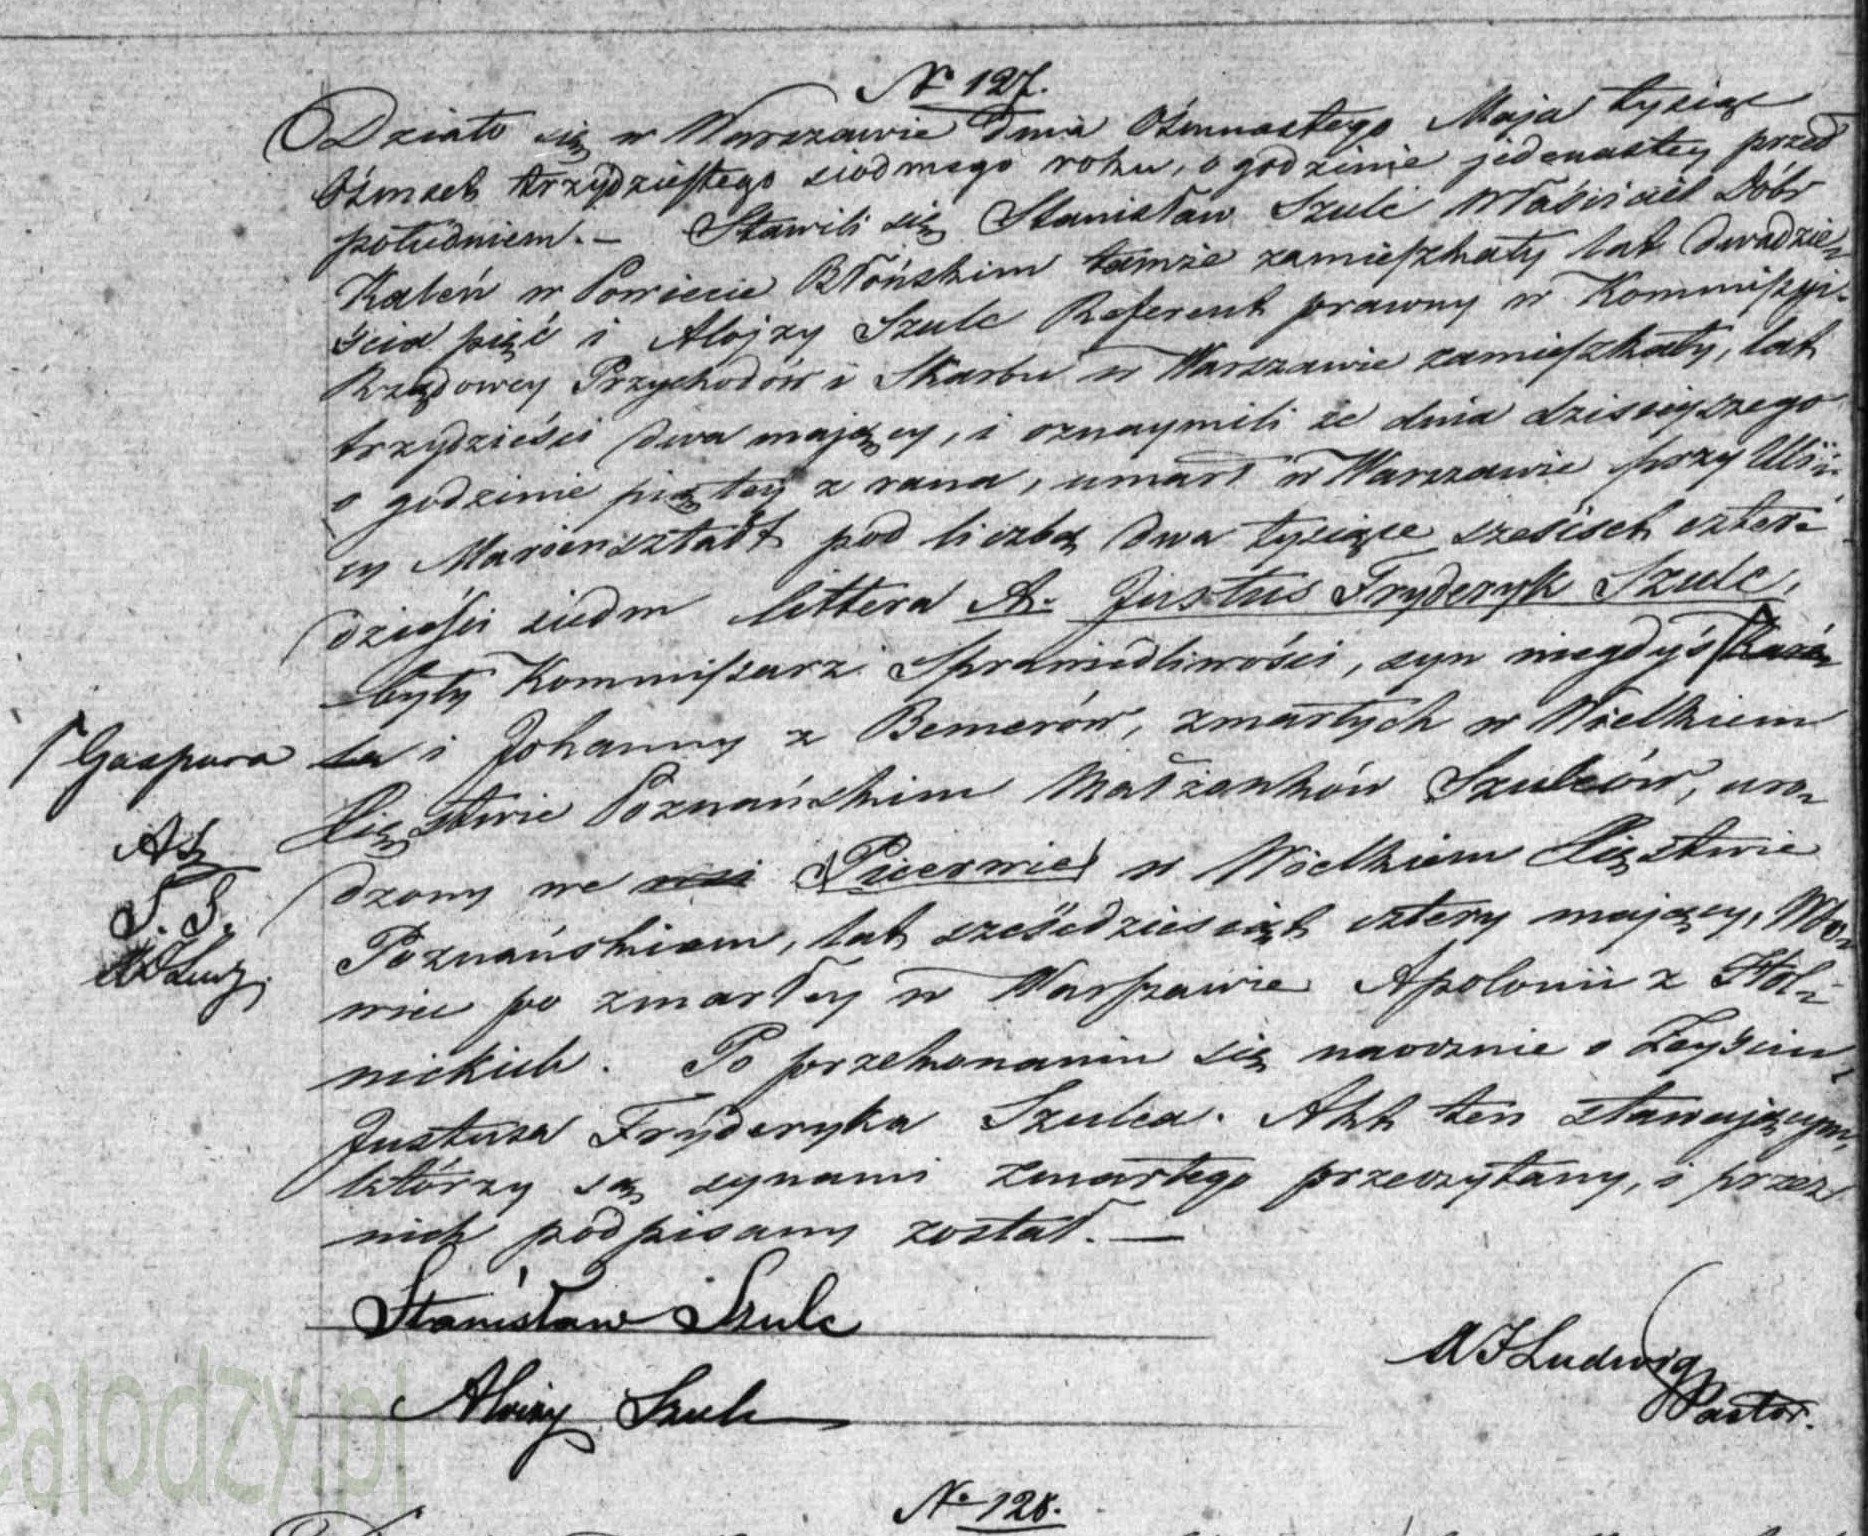 N 127.
Działo się w Warszawie dnia Ósmnastego Maja tysiąc
Ośmset trzydziestego siodmego roku, o godzinie jedenastey przed
południem. – Stawili się Stanisław Szulc Właściciel Dóbr
Kaleń w Powiecie Błońskim tamże zamieszkały lat dwadzie-
ścia pięć i Alojzy Szulc Referent prawny w Kommissyi
Rządowey Przychodów i Skarbu w Warszawie zamieszkały, lat
trzydzieści dwa maiący, i oznaymili że dnia dzisieyszego
o godzinie piątey z rana, umarł w Warszawie przy Uli-
cy Mariensztadt pod liczbą dwa tysiące sześćset czter-
dzieści siedm littera A. Justus Fryderyk Szulc,
były Kommissarz Sprawiedliwości, syn niegdyś
i Johanny z Bemerów, zmarłych w Wielkiem
Xięstwie Poznańskim Małżonków Szulców, uro-
dzony we wsi Pierwie w Wielkiem Xięstwie
Poznańskiem, lat sześćdziesiąt cztery mający, Wdo-
wiec po zmarłey w Warszawie Apolonii z Stol-
nickich. Po przekonaniu się naocznie o Zeyściu
Justusa Fryderyka Szulca. Akt ten stawającym,
którzy są synami zmarłego przeczytany, i przez
nich podpisany został. —
Gaspara
A Sz
S. S.
Stanisław Szulc
Aloizy Szulc
Ludwig
Pastor.
No 128.
ealodzy.pl